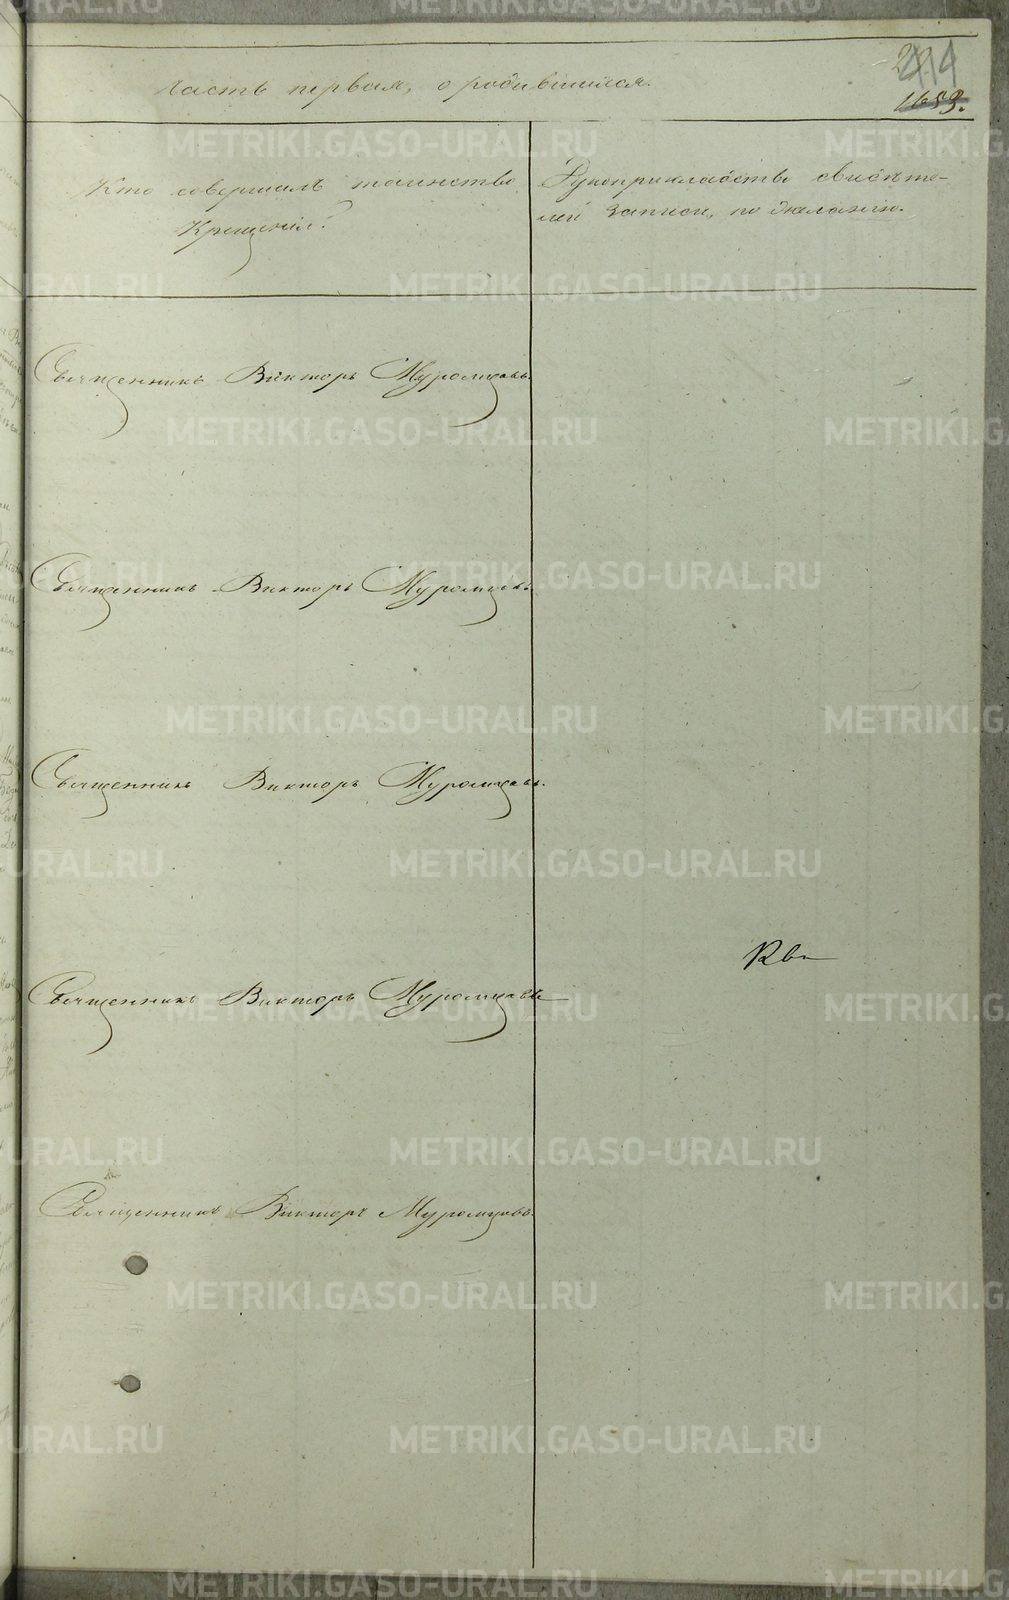 Часть первая, о родившихся.
414
1653.
Кто совершалъ таинство
Крещенія?
Рукоприкладство свидѣте-
лей записи, по желанію.
Священникъ Викторъ Муромцовъ.
Священникъ Викторъ Муромцовъ.
Священникъ Викторъ Муромцовъ.
Священникъ Викторъ Муромцовъ
Священникъ Викторъ Муромцовъ.
METRIKI.GASO-URAL.RU